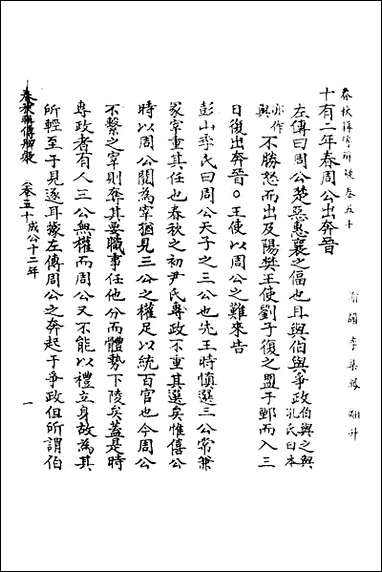 春秋集傳辨疑卷五十
十有二年春周公出奔晉
左傳曰周公楚惡惠襄之偪也且與伯與爭政伯與之與孔氏曰本
亦作
與不勝怒而出及陽樊王使劉子復之盟于鄄而入三
日復出奔晉○王使以周公之難來告
彭山季氏曰周公天子之三公也先王時慎選三公常兼
冢宰重其任也春秋之初尹氏專政不重其選矣惟僖公
時以周公閱為宰猶見三公之權足以統百官也今周公
不繫之宰則奪其要職事任他分而體勢下陵矣蓋是時
專政者有人三公無權而周公又不能以禮立身故為其
所輕至于見逐耳據左傳周公之奔起于爭政但所謂伯
卷五十 成公十二年
一